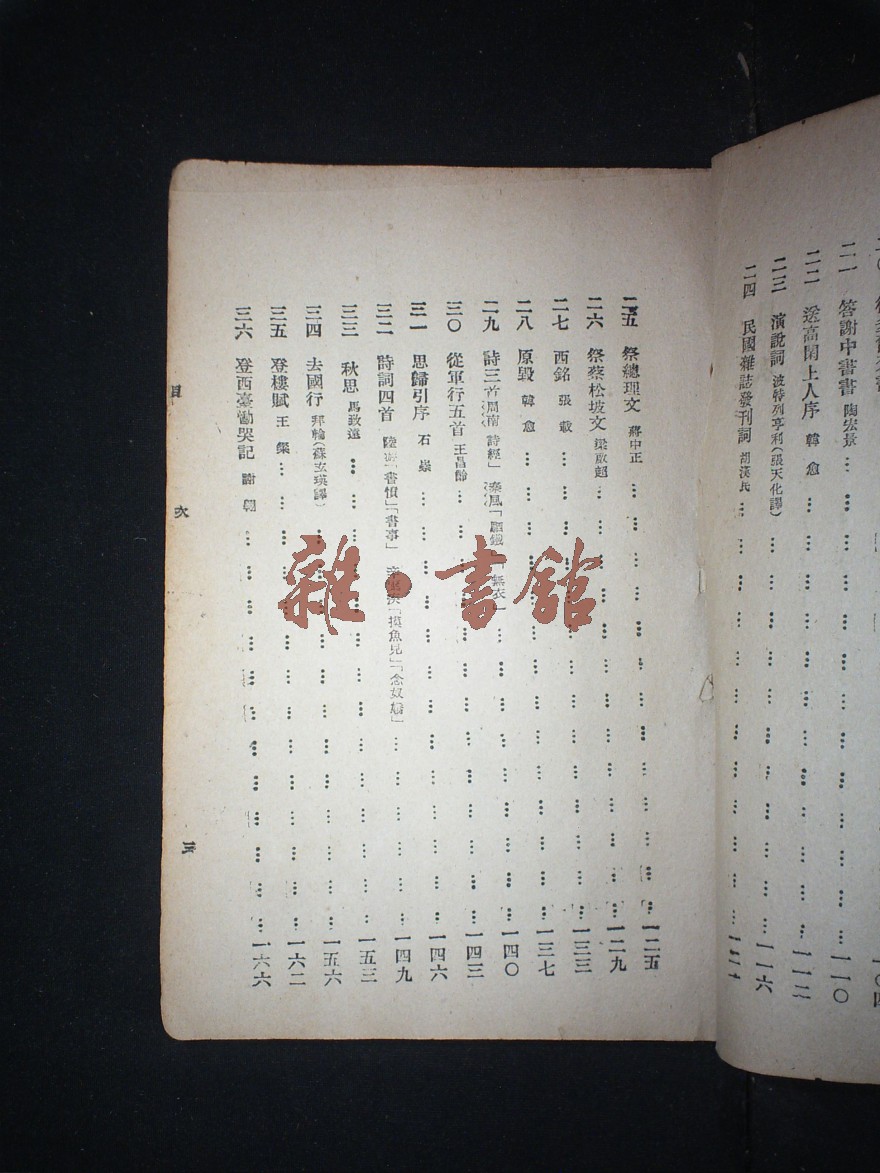 二一 答謝中書書 陶宏景 … … … … … … … … … … … 一一〇
二二 送高閑上人序 韓愈 … … … … … … … … … … … 一一二
二三 演說詞 波特列亨利(張天化譯) … … … … … … … … … … 一一六
二四 民國雜誌發刊詞 胡漢民 … … … … … … … … … … … 一二
二五 祭總理文 蔣中正 … … … … … … … … … … … 一二五
二六 祭蔡松坡文 梁啟超 … … … … … … … … … … … 一二九
二七 西銘 張載 … … … … … … … … … … … … 一三三
二八 原毀 韓愈 … … … … … … … … … … … … 一三七
二九 詩三首 周南 詩經」 秦風「 」「無衣」 … … … … … … … 一四〇
三〇 從軍行五首 王昌齡 … … … … … … … … … … … 一四三
三一 思歸引序 石崇 … … … … … … … … … … … 一四六
三二 詩詞四首 陸游「書憤」「書事」 辛棄疾「摸魚兒」「念奴嬌」 … … … … … 一四九
三三 秋思 馬致遠 … … … … … … … … … … … 一五三
三四 去國行 拜輪(蘇玄瑛譯) … … … … … … … … … … 一五六
三五 登樓賦 王粲 … … … … … … … … … … … 一六二
三六 登西臺慟哭記 謝翱 … … … … … … … … … … 一六六
目 次 三
雜·書館